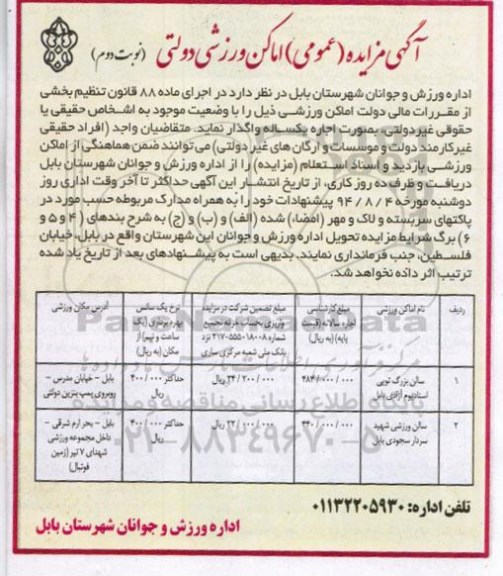 آگهی مزایده (عمومی) اماکن ورزشی دولتی (نوبت دوم)
اداره ورزش و جوانان شهرستان بابل در نظر دارد در اجرای ماده ۸۸ قانون تنظیم بخشی
از مقررات مالی دولت اماکن ورزشی ذیل را با وضعیت موجود به اشخاص حقیقی یا
حقوقی غیردولتی، بصورت اجاره یکساله واگذار نماید. متقاضیان واجد (افراد حقیقی
غیرکارمند دولت و موسسات و ارگان های غیر دولتی) می‌توانند ضمن هماهنگی از اماکن
ورزشی بازدید و اسناد استعلام (مزایده) را از اداره ورزش و جوانان شهرستان بابل
دریافت و ظرف ده روز کاری، از تاریخ انتشار این آگهی حداکثر تا آخر وقت اداری روز
دوشنبه مورخه ۹۴/۸/۴ پیشنهادات خود را به همراه مدارک مربوطه حسب مورد در
پاکتهای سربسته و لاک و مهر (امضاء) شده (الف) و (ب) و (ج) به شرح بندهای (۴ و ۵ و
۶) برگ شرایط مزایده تحویل اداره ورزش و جوانان این شهرستان واقع در بابل، خیابان
فلسطین، جنب فرمانداری نمایند. بدیهی است به پیشنهادهای بعد از تاریخ یاد شده
ترتیب اثر داده نخواهد شد.
ردیف نام اماکن ورزشی مبلغ کارشناسی مبلغ تضمین شرکت در مزایده نرخ یک سانس آدرس مکان ورزشی
اجاره سالانه (قیمت واریزی بحساب بهره برداری (یک
پایه) (به ریال) نزد ساعت و نیم) از
بانک ملی شعبه مرکزی ساری مکان (به ریال)
۱ سالن بزرگ توپی ریال حداکثر ۴۰۰/۰۰۰ بابل - خیابان مدرس -
استادیوم آزادی بابل ریال روبروی پمپ بنزین
۲ سالن ورزشی شهید ۴۴۰/۰۰۰/۰۰۰ ۲۲/۰۰۰/۰۰۰ ریال حداکثر ۴۰۰/۰۰۰ بابل - بحر ارم شرقی -
سردار سجودی بابل ریال داخل مجموعه ورزشی
شهدای ۷ تیر (زمین
فوتبال)
تلفن اداره: ۰۱۱۳۲۲۰۵۹۳۰
اداره ورزش و جوانان شهرستان بابل
پایگاه اطلاع رسانی مناقصه و مزایده
۰۲۱-۸۸۳۴۹۶۷۰-۵